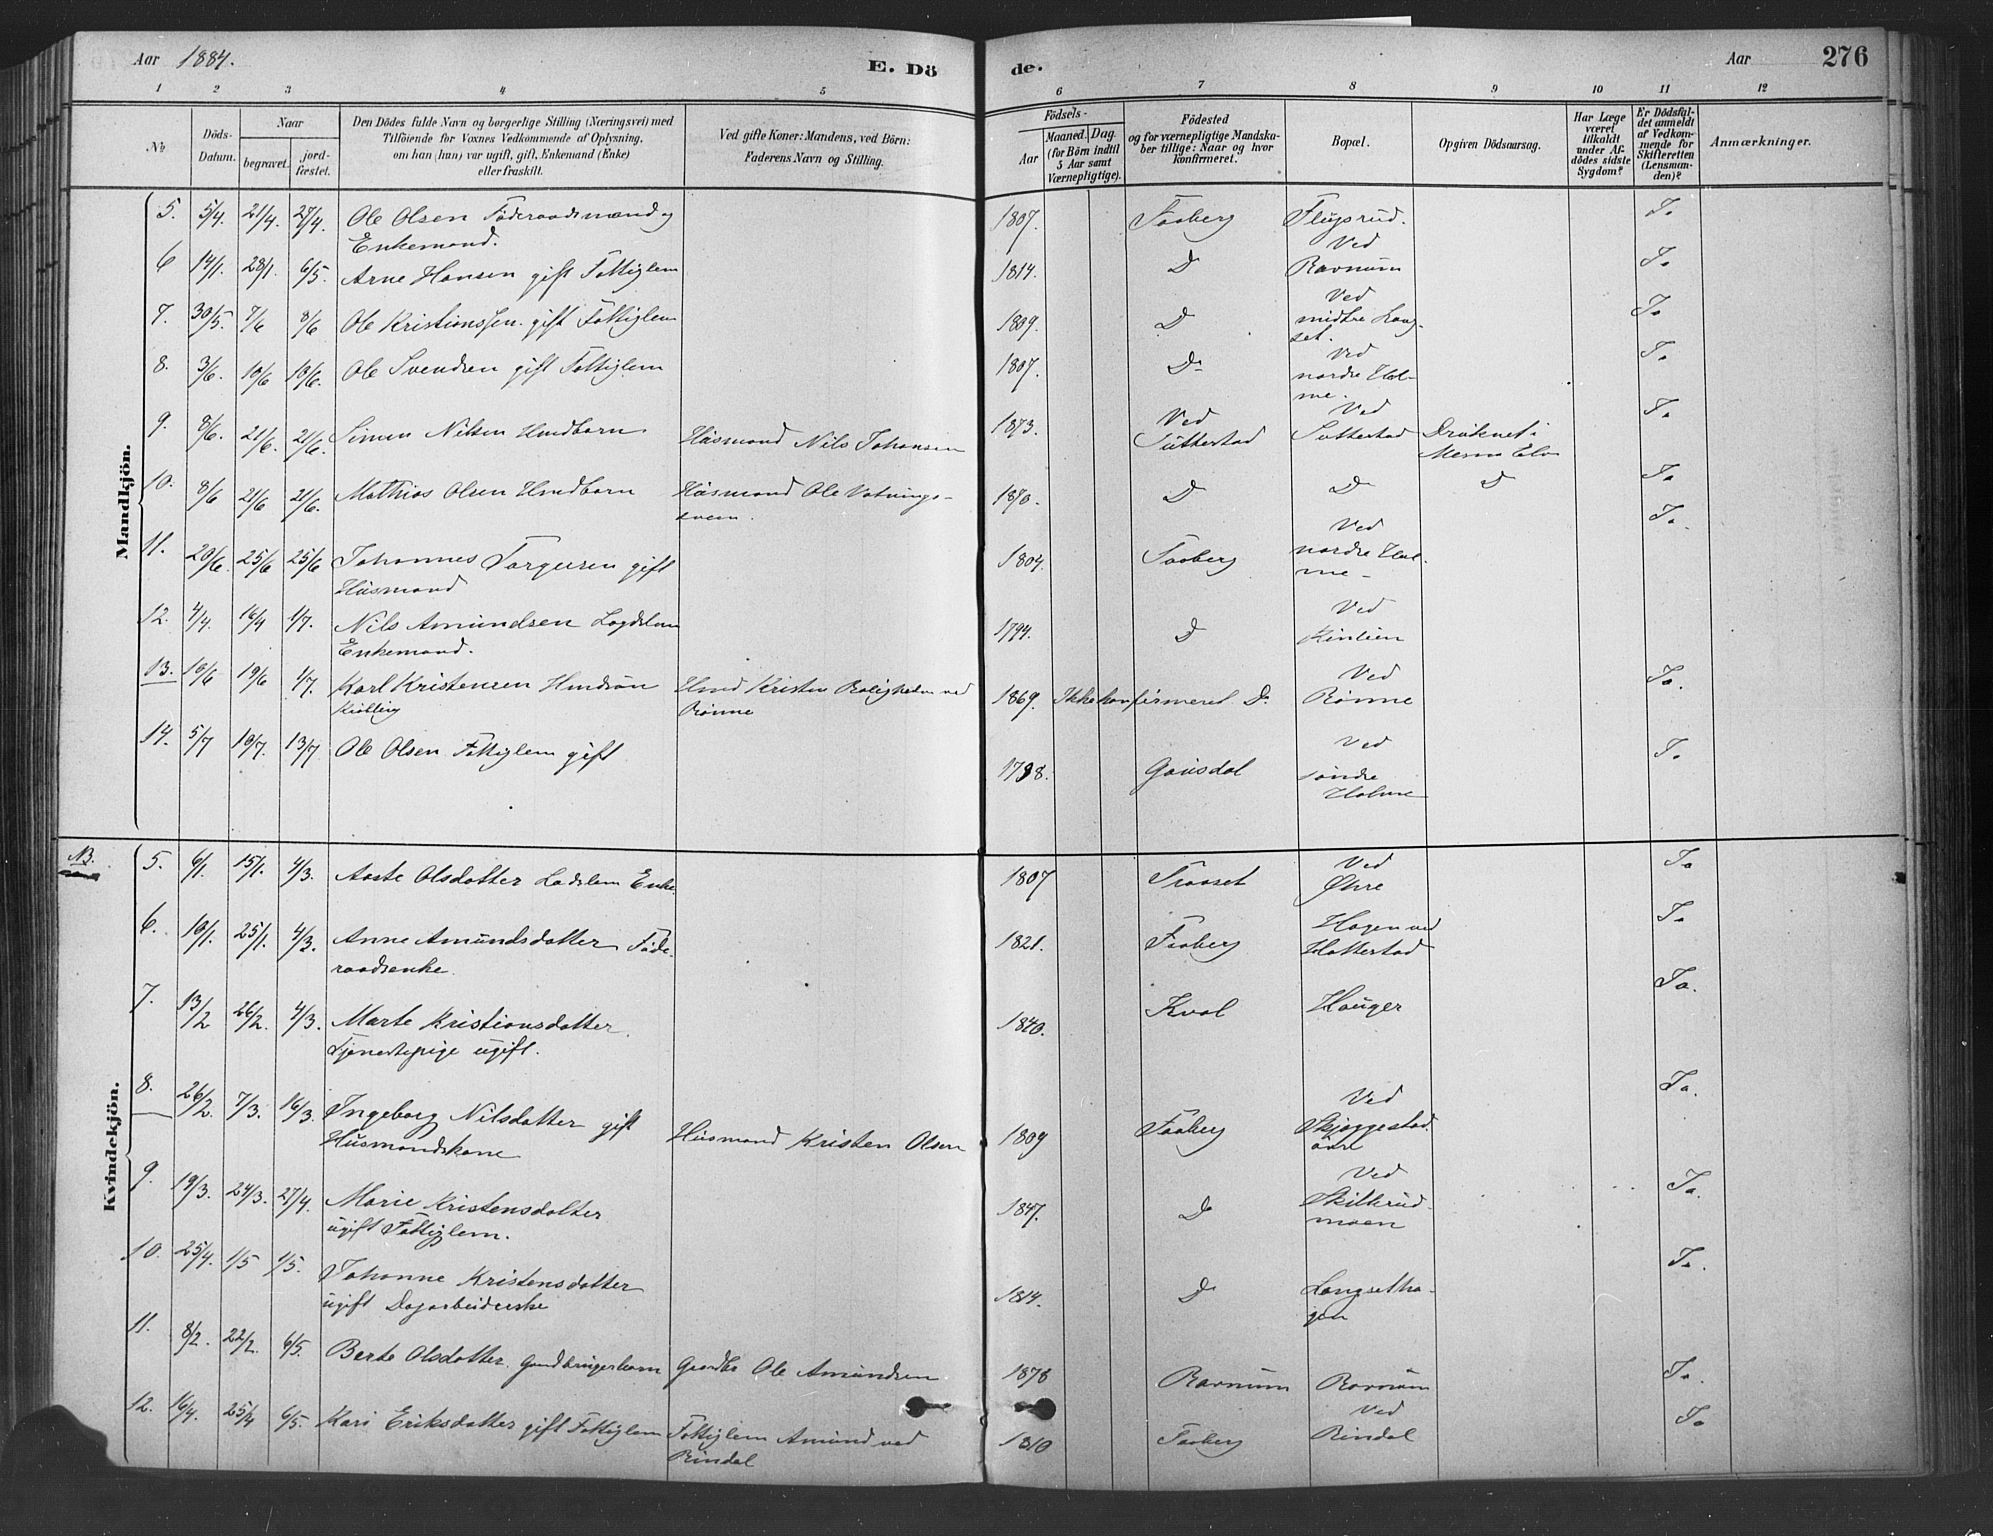 Aar 1884. E. Dö de. Aar 276
1 2 3 4 5 6 7 8 9 10 11 12
№
Döds-Datum.
Naar
begravet.
jord-fæstet.
Den Dödes fulde Navn og borgerlige Stilling (Næringsvei) med
Tilföiende for Voxnes Vedkommende af Oplysning,
om han (hun) var ugift, gift, Enkemand (Enke)
eller fraskilt.
Ved gifte Koner: Mandens, ved Börn:
Faderens Navn og Stilling.
Födsels-
Aar
Maaned. Dag.
(for Börn indtil
5 Aar samt
Værnepligtige).
Födested
og for værnepligtige Mandska-
ber tillige: Naar og hvor
konfirmeret.
Bopæl.
Opgiven Dödsaarsag.
Har Læge
været
tilkaldt
under Af-
dödes sidste
Sygdom?
Er Dödsful-
det anmeldt
af Vedkom-
mende for
Skifteretten
(Lensman-
den)?
Anmærkninger.
Mandkjön.
5. 5/4. 21/4. 27/4. Ole Olsen Föderaadsmand og 1807. Faaberg Flugsrud. Ja
Enkemand.
6 14/1. 28/1. 6/5. Arne Hansen gift Fattiglem 1814. D Ved Ja
Ravnum
7. 30/5. 7/6 8/6 Ole Kristianssen gift Fattiglem 1809. D Ved Ja
midtre Lang-
set.
8. 3/6. 10/6 10/6. Ole Svendsen gift Fattiglem 1807. Do Ved Ja
nordre Hol-
me.
9. 8/6. 21/6. 21/6. Simen Nilsen Hmdbarn. Husmand Nils Johansen 1873. Ved Ved Ja
Suttestad Suttestad Druknet i
Mesna Elv
10. 8/6 21/6 21/6. Mathias Olsen Hmdbarn Husmand Ole Vatnings- 1870. D D D Ja
sveen.
11. 20/6. 25/6 25/6 Johannes Torgersen gift 1804. Faaberg Ved Ja.
Husmand nordre Hol-
me
12. 4/4. 16/4 1/7. Nils Amundsen Lægdslem 1794. D Ved
Enkemand. Kinlien
13. 10/6 19/6 1/7. Karl Kristensen Hmdsön Hmd Kristen Roligheden ved 1869. Ikke konfirmeret Do Ved Ja.
Krøbling Rönne Rönne
14. 5/7 10/7. 13/7 Ole Olsen Fattiglem gift 1798. Gausdal Ved Ja
söndre
Holme
Kvindekjön.
NB.
5. 6/1. 15/1. 4/3. Aaste Olsdatter Ladslem Enke. 1807 Traaset Ved Ja
Øhre
6. 10/1. 25/1. 4/3. Anne Amundsdatter Föde- 1821. Faaberg Hagen ved Ja
raadsenke. Hattestad
7. 13/2 26/2. 4/3. Marte Kristiansdatter 1840. Kval Hauger Ja.
Tjenestepige ugift.
8. 26/2. 7/3. 16/3. Ingeborg Nilsdatter gift Husmand Kristen Olsen 1809 Faaberg Ved Ja.
Husmandskone Skjæggestad
9. 19/3. 24/3. 27/4. Marie Kristensdatter 1847. D Ved Ja.
ugift Fattiglem. Skilkrud
moen
10. 25/4. 1/5 1/5. Johanne Kristensdatter 1814. D Langsetha- Ja.
ugift Dagarbeiderske gen
11. 8/2. 22/2. 6/5. Berte Olsdatter. Gaardbrugerbarn Gaardbr Ole Amundsen 1878 Ravnum Ravnum Ja.
12. 16/4. 25/4 6/5. Kari Eriksdatter gift Fattiglem Fattiglem Amund ved 1810 Faaberg Ved Ja
Rindal Rindal